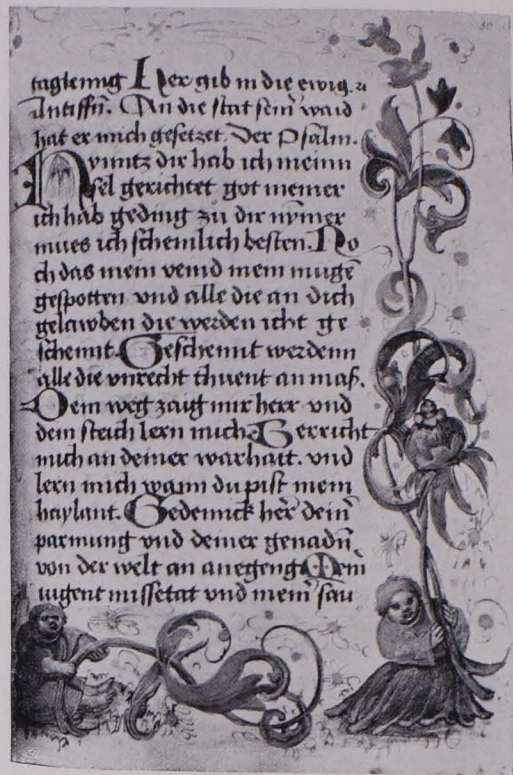 80
tagleinng Her gib in die ewig. r̃
Antiffñ. An die stat sein waid
hat er mich gesetzet. Der Psalm.
Avnntz dir hab ich meinn
sel gerichtet got meiner
ich hab geding zu dir nÿmer
mues ich schemlich besten. No
ch das mein veind mein mugē
gespotten vnd alle die an dich
gelawben die werden icht ge
schennt. Geschennt werdenn
alle die vnrecht thuent an maß.
Dein weg zaig mir herr vnd
dem steich lern mich. Gerricht
mich an deiner warhait. vnd
lern mich wann du pist mein
haylant. Gedennck her̄ dein̄
parmung vnd deiner genadn̄
von der welt an anegeng. Mein
iugent missetat vnd mein̄ sau